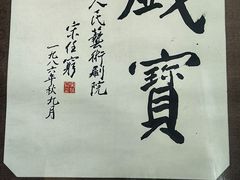 寶
人民藝術剧院
宋任窮
一九八六年秋九月